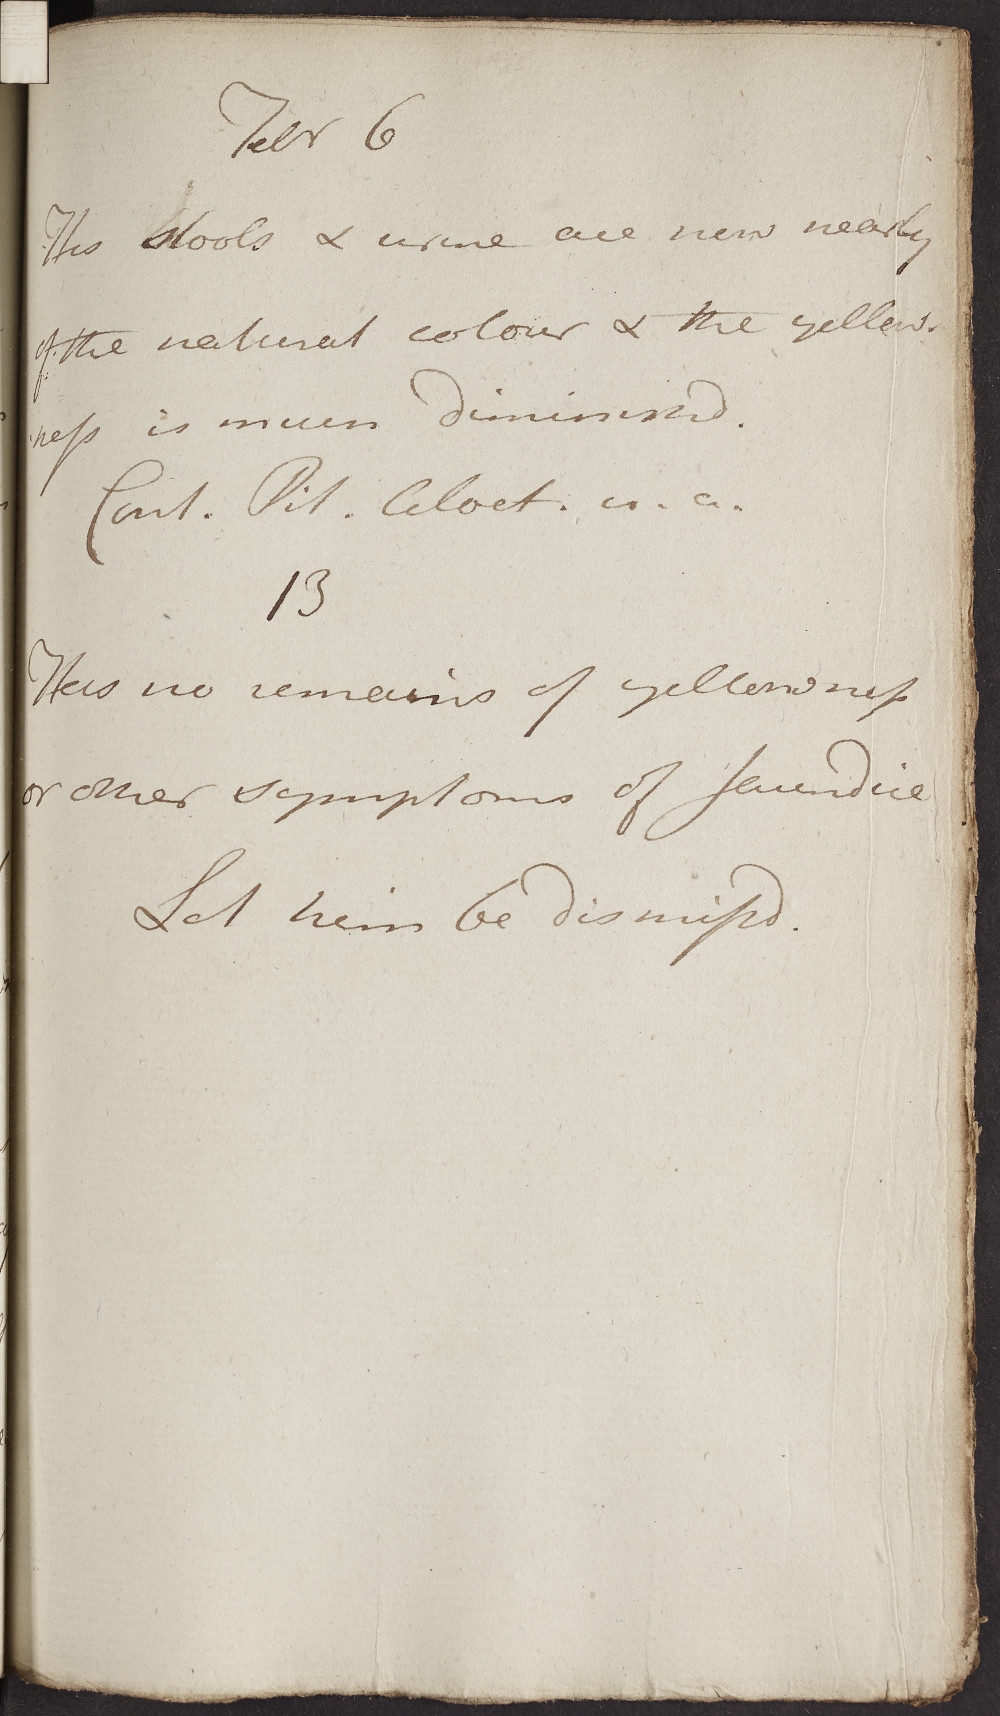 Febr 6
His stools & urine are now nearly
of the natural colour & the yellow-
neſs is much diminishd.
Cont. Pil. Aloet. u. a.
13
Has no remains of yellowneſs
or other symptoms of Jaundice
Let him be dismiſsd.